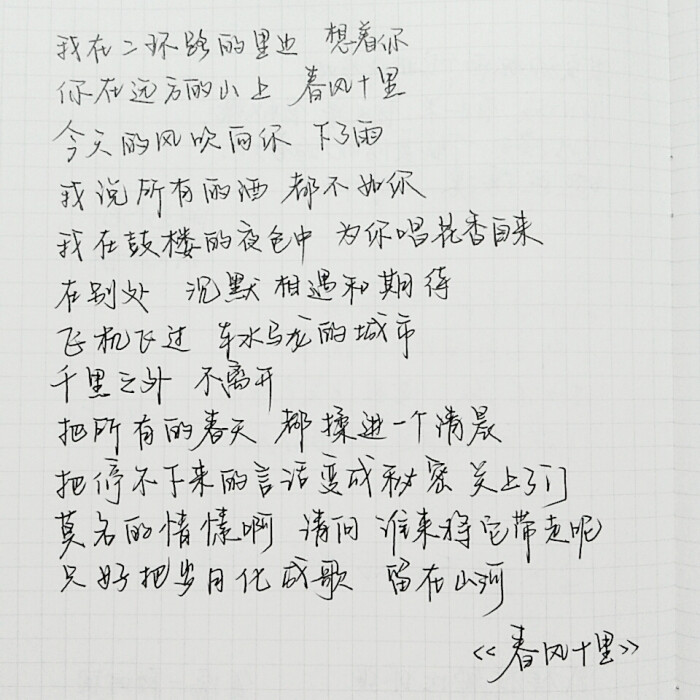 我在二环路的里边 想着你
你在远方的山上 春风十里
今天的风吹向你 下了雨
我说所有的酒 都不如你
我在鼓楼的夜色中 为你唱花香自来
在别处 沉默相遇和期待
飞机飞过 车水马龙的城市
千里之外 不离开
把所有的春天 都揉进一个清晨
把停不下来的言语变成秘密 关上了门
莫名的情愫啊 请问 谁来将它带走呢
只好把岁月化成歌 留在山河
《春风十里》